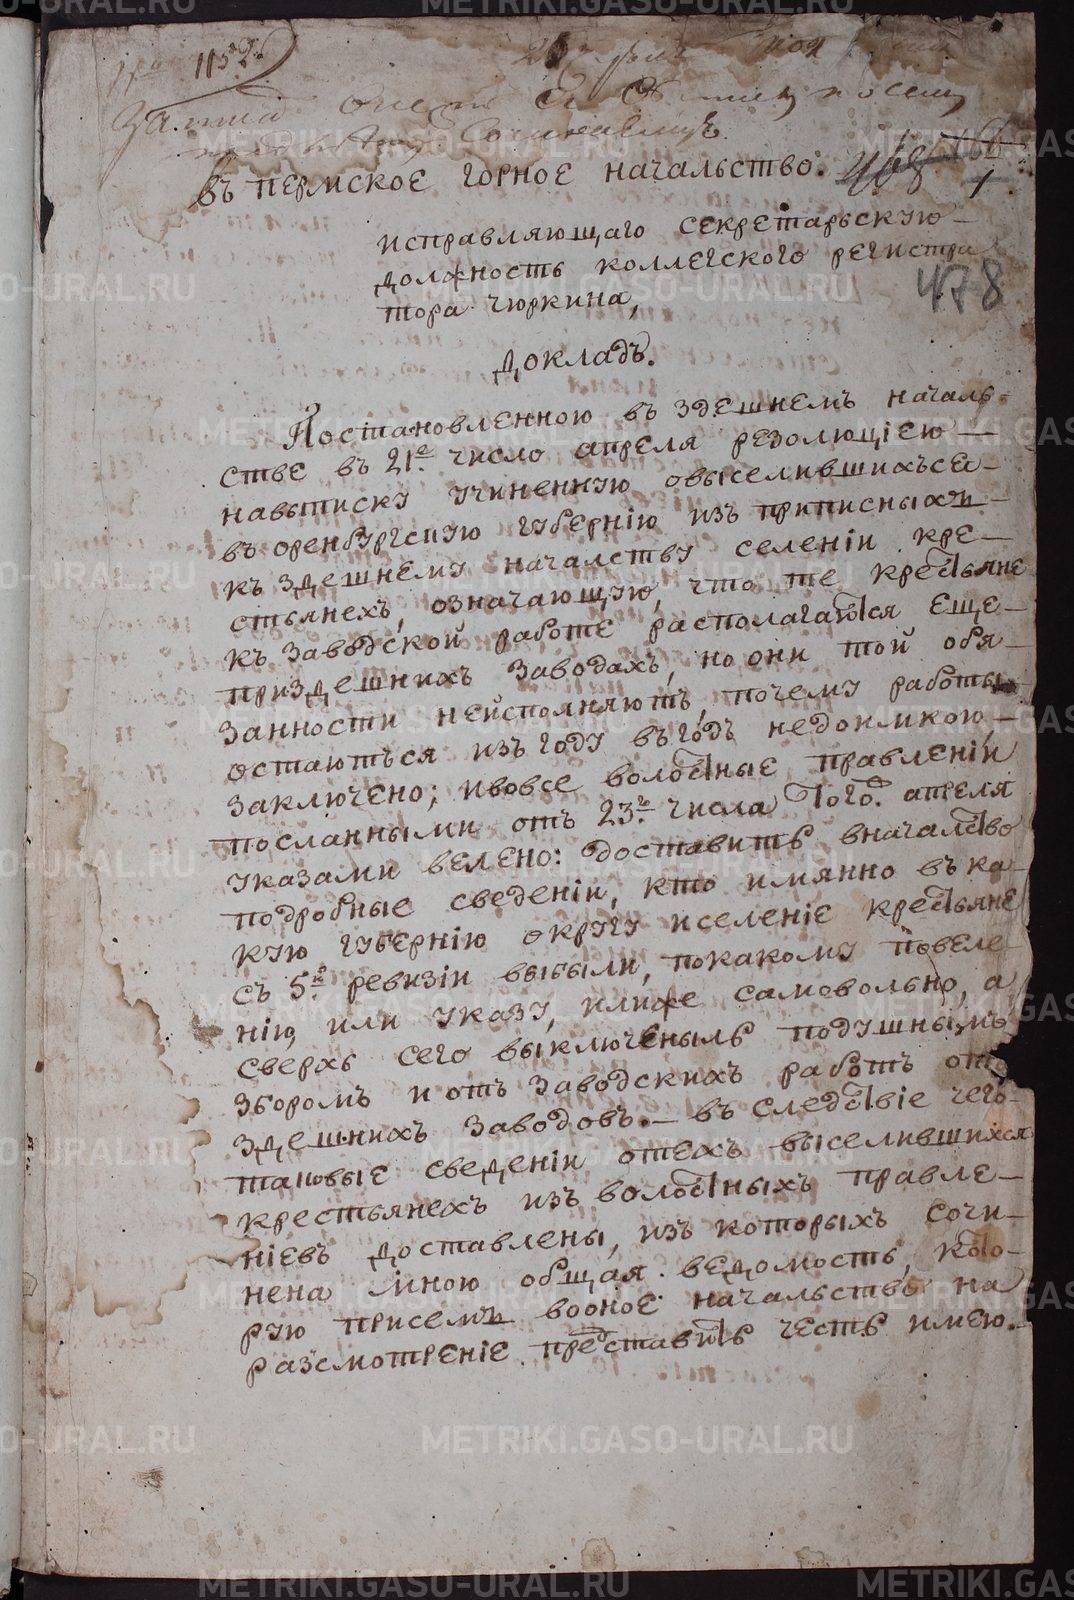 1152
въ пермское горное начальство.
468
1
исправляющаго секретарьскую
должность коллегского регистра
478
тора чюркина,
докладъ.
Постановленною въ здешнемъ началь-
стве въ 21е. число апреля резолюцiею
навыписку учиненную овыселившихъся
въ оренбургскую губернiю изъ приписныхъ
къ здешнему началству селенiи кре-
стьянехъ, означающую, что те крестьяне
къ заводской работе располагаются еще
приздешнихъ заводахъ, но они той обя
занности неисполняютъ, почему работы
остаються изъ году въ годъ недоимкою,
заключено; ивовсе волостные правленiи
посланными отъ 23го. числа того. апреля
указами велено: доставить вначалство
подробные сведенiи, кто имянно въ ка-
кую губернiю округу иселенiе крестьяне
съ 5й. ревизiи выбыли, покакому повеле
нiю, или указу, илиже самовольно, а
сверхъ сего выключеныль подушнымъ
зборомъ и отъ заводскихъ работъ отъ
здешнихъ заводовъ. въ следствiе чего
таковые сведенiи отехъ выселившихся
крестьянехъ изъ волостныхъ правле-
нiевъ доставлены, изъ которыхъ сочи-
нена мною общая ведомость, кото-
рую присемъ вооное начальство на
разсмотренiе представить честь имею.
METRIKI.GASO-URAL.RU